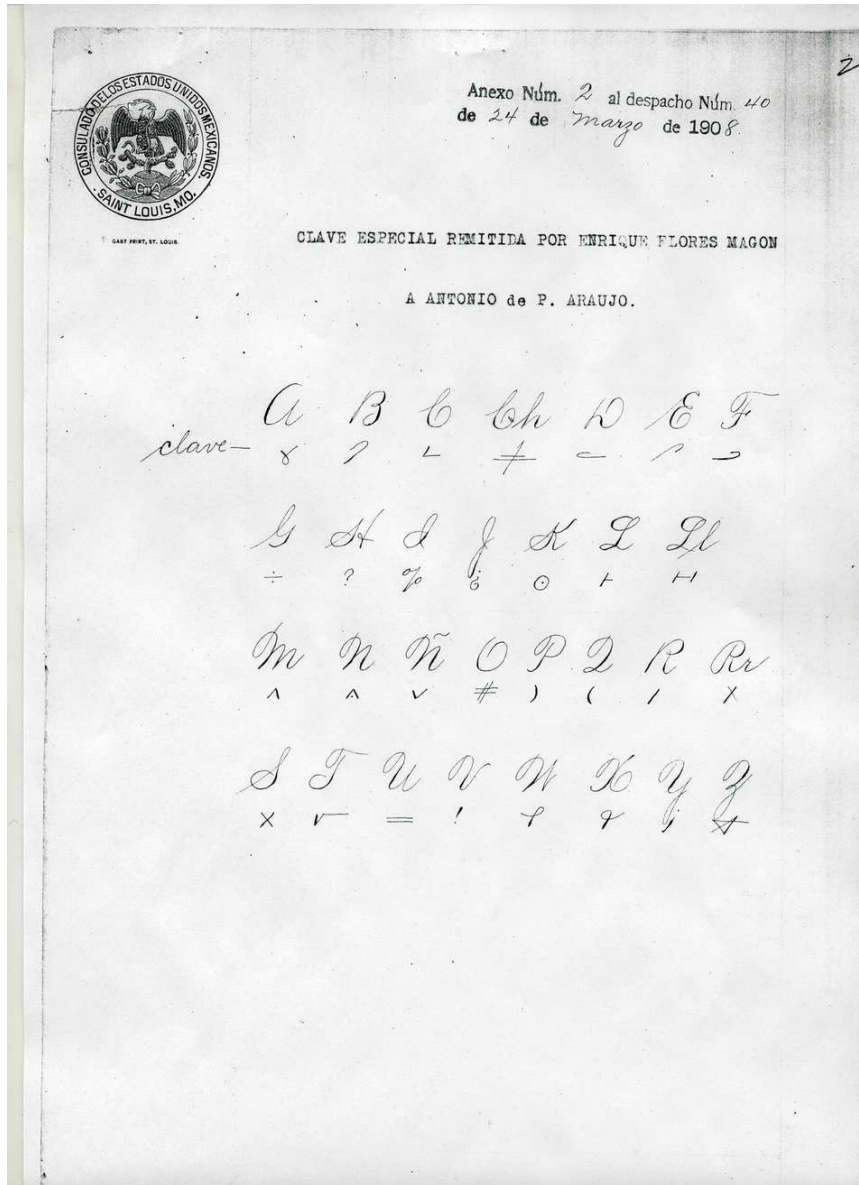 2
CONSULADO DE LOS ESTADOS UNIDOS MEXICANOS.
SAINT LOUIS, MO.
GAST PRINT, ST. LOUIS.
Anexo Núm. 2 al despacho Núm. 40
de 24 de Marzo de 1908.
CLAVE ESPECIAL REMITIDA POR ENRIQUE FLORES MAGON
A ANTONIO de P. ARAUJO.
A B C Ch D E F
clave—
G H I J K L Ll
÷ ? % ¿ ⊙ ⊢ ⊢⊣
M N Ñ O P Q R Rr
^ ^ v # ) ( / X
S T U V W X Y Z
× √ = ! ;